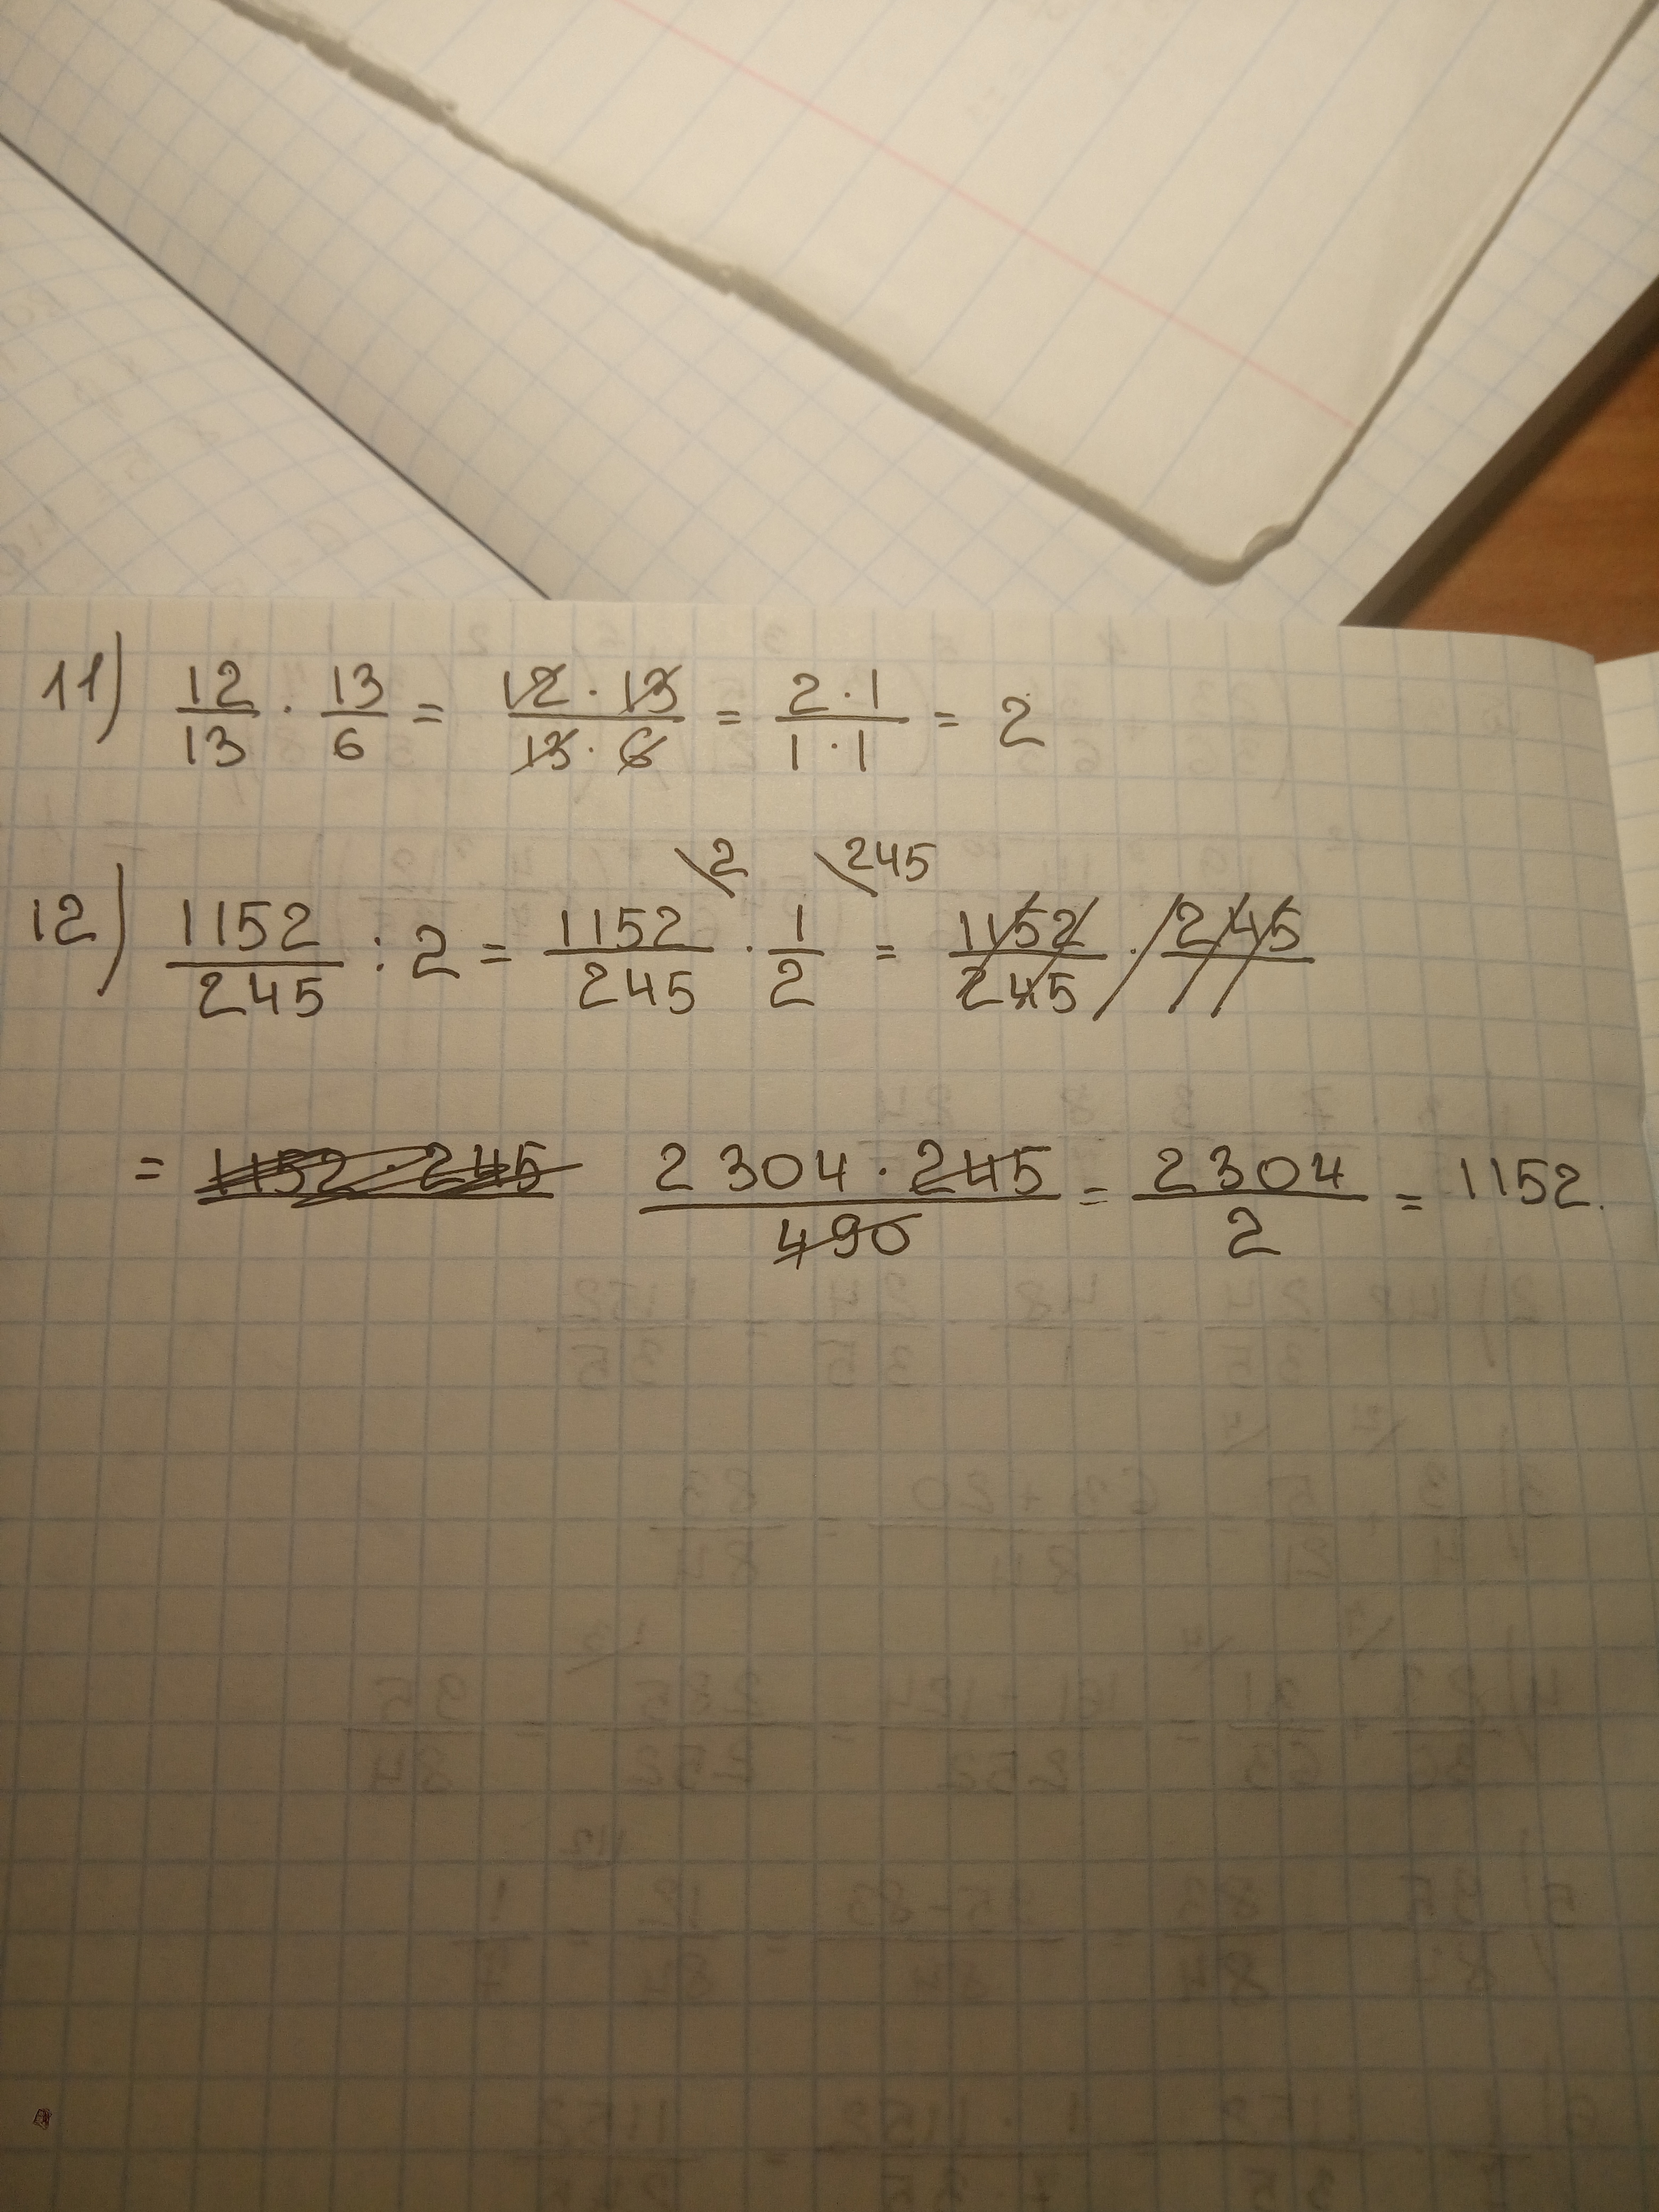 11) 12/13 · 13/6 = 12 · 13/13 · 6 = 2 · 1/1 · 1 = 2
\2 \245
12) 1152/245 : 2 = 1152/245 · 1/2 = 1152/245 · 245/
= 1152 · 245 2304 · 245/490 = 2304/2 = 1152.